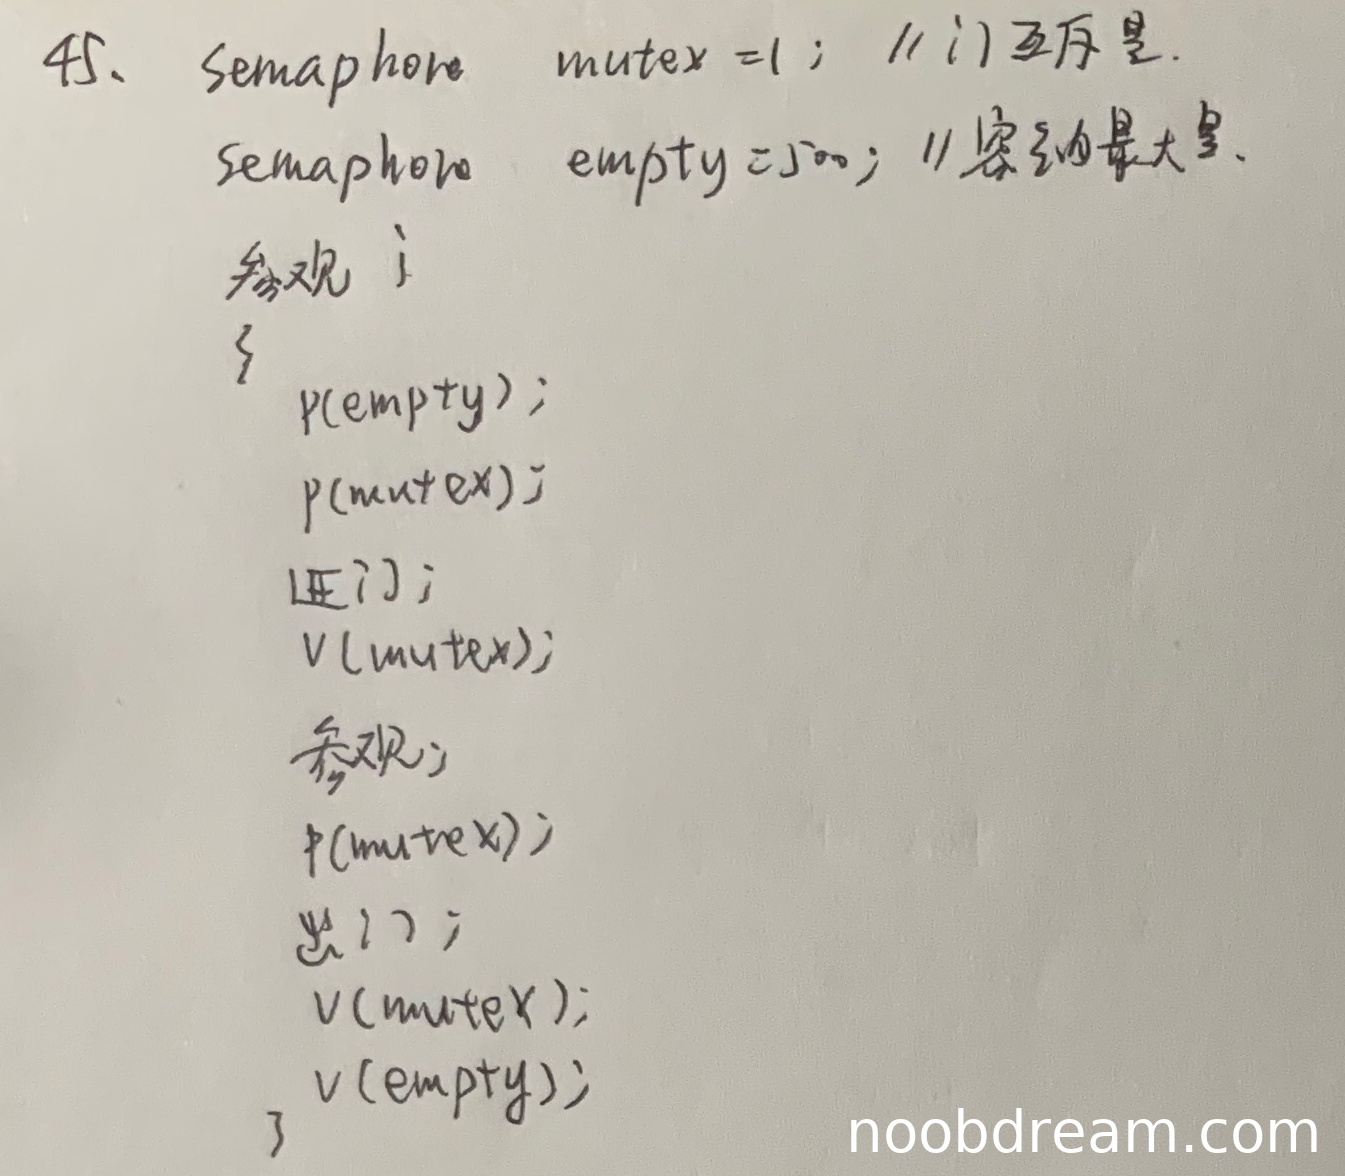 45、 semaphore mutex =1; //门互斥量.
semaphore empty=500; //容纳最大量.
参观 i
{
p(empty);
p(mutex);
进门;
V(mutex);
参观;
P(mutex);
出门;
V(mutex);
V(empty);
}
noobdream.com